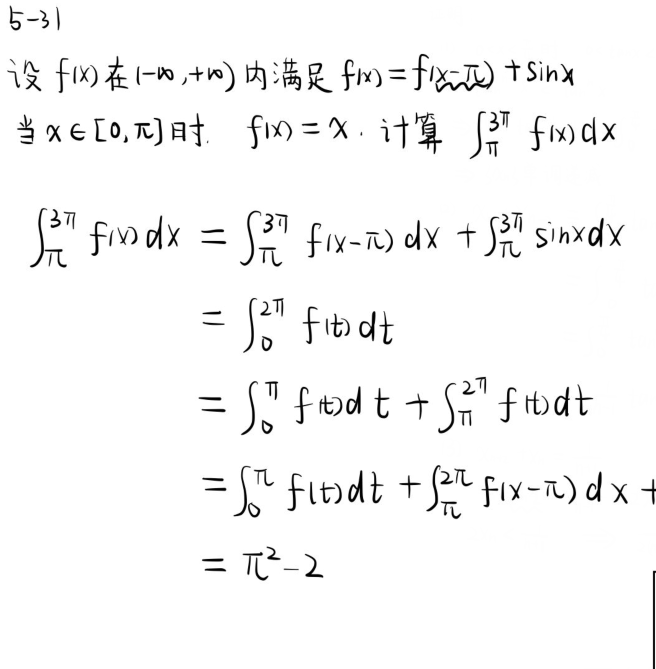 5-31
设 f(x) 在 (-∞,+∞) 内满足 f(x) = f(x-π) + sinx
当 x∈[0,π] 时. f(x) = x. 计算 ∫_π^{3π} f(x) dx
∫_π^{3π} f(x) dx = ∫_π^{3π} f(x-π) dx + ∫_π^{3π} sinx dx
= ∫_0^{2π} f(t) dt
= ∫_0^π f(t) dt + ∫_π^{2π} f(t) dt
= ∫_0^π f(t) dt + ∫_π^{2π} f(x-π) dx +
= π²-2